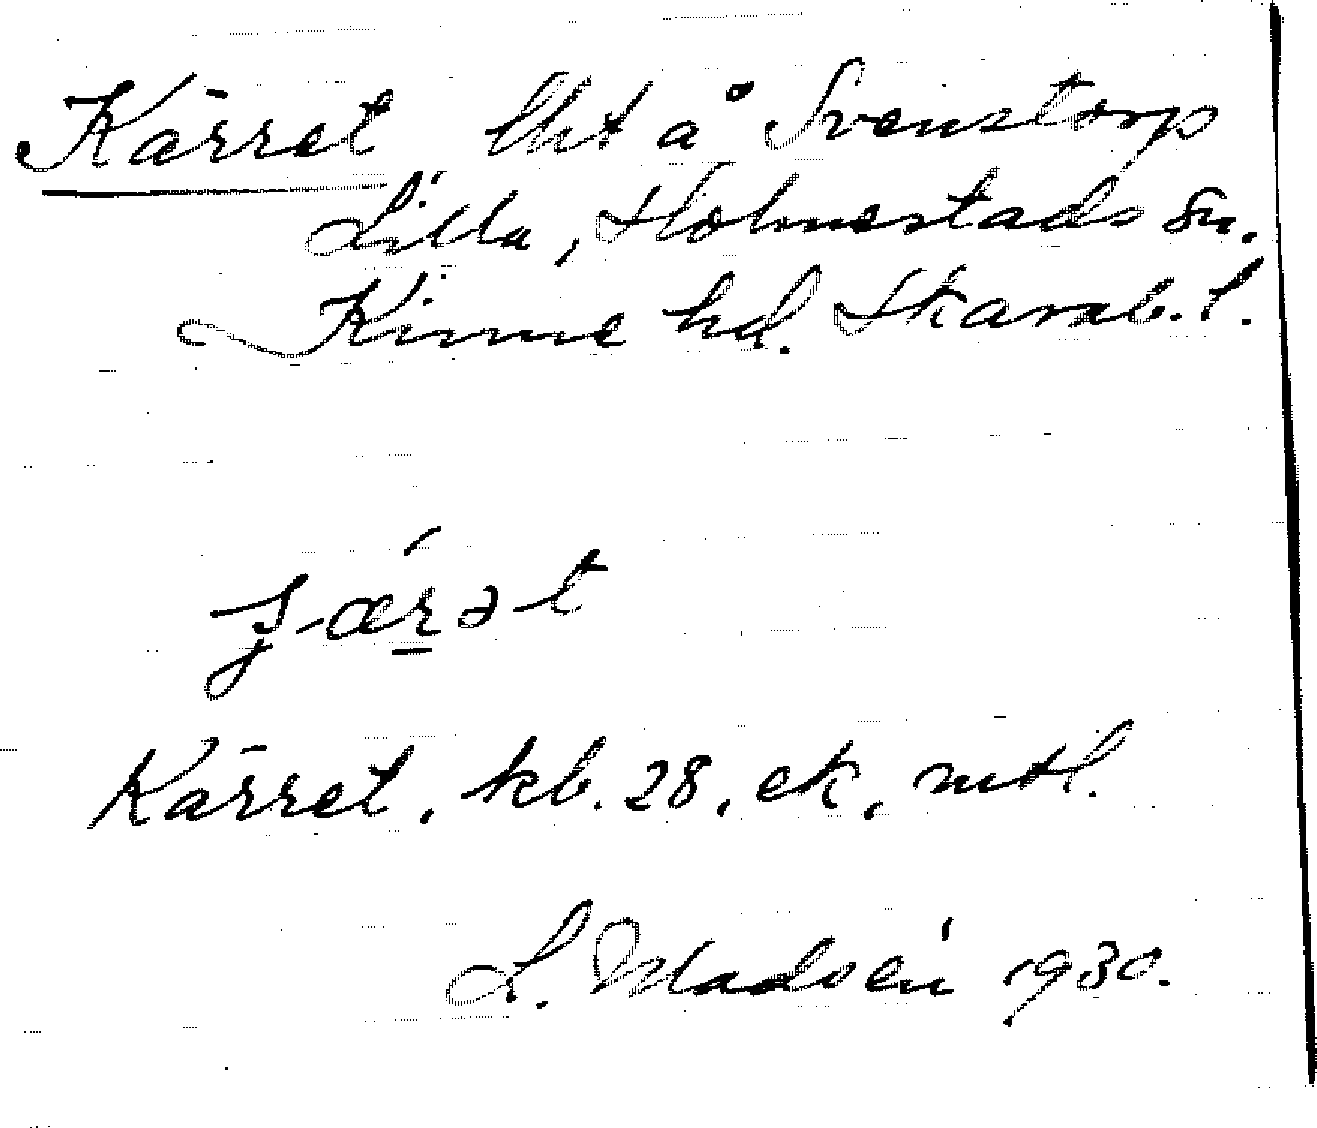 Kärret lht å Svenstorp
Lilla, Holmestads sn.
Kinne hd. Skarab. l.
ʂ-ǽrət
Kärret, kb. 28, ek, mtl.
L. Madsén 1930.